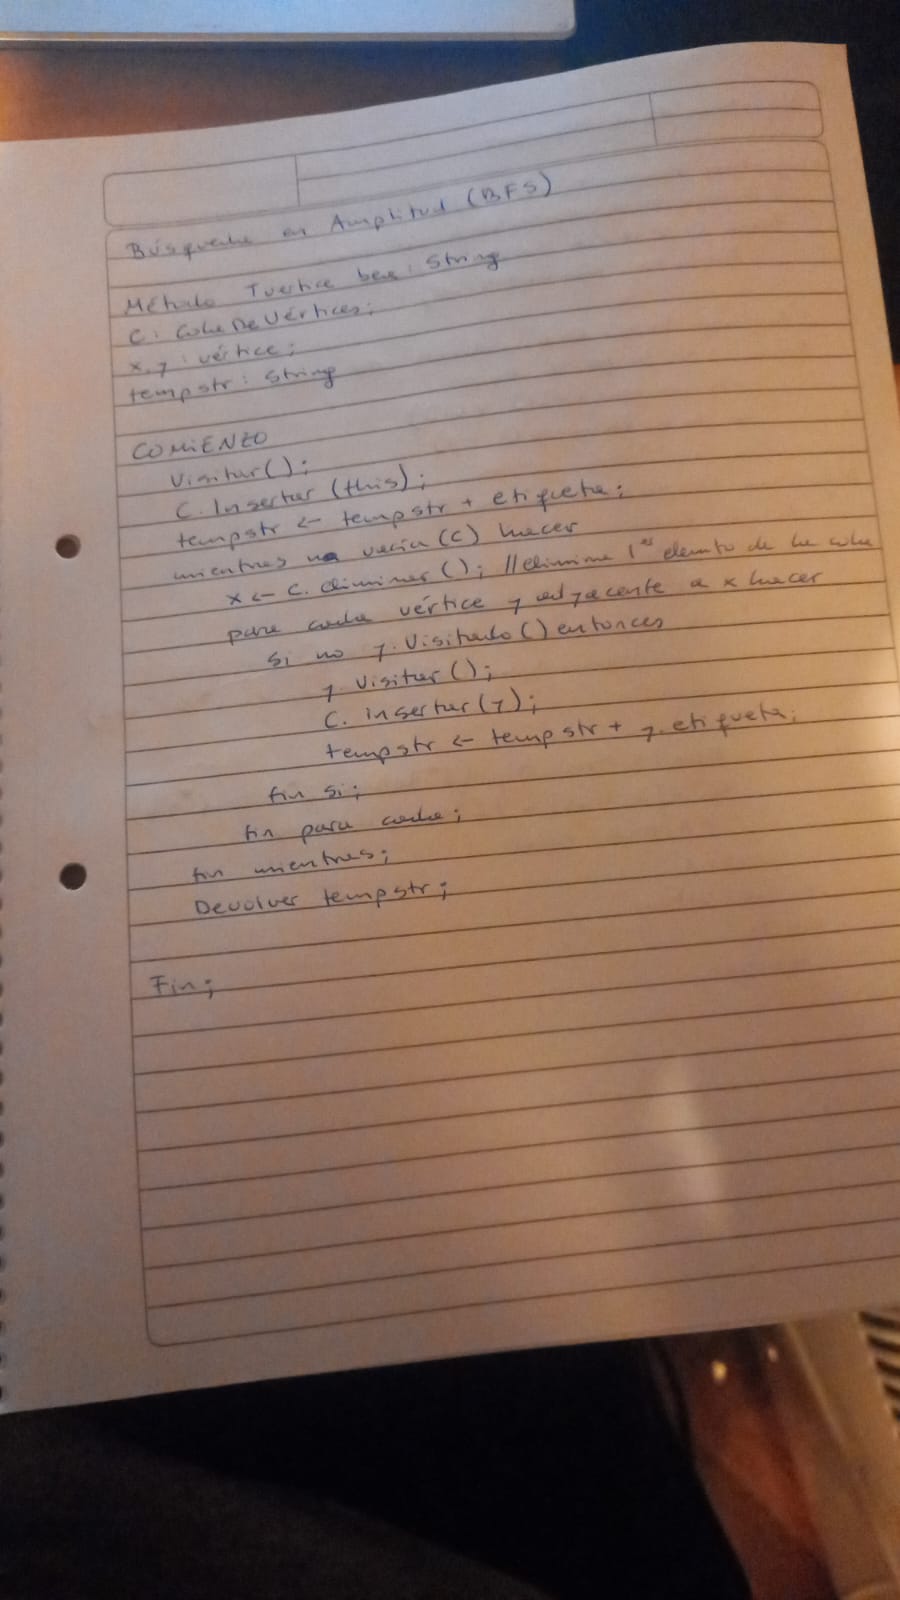 Búsqueda en Amplitud (BFS)
Método Tvertice bea: String
C: ColaDeVértices;
x, y: vértice;
tempstr: String
COMIENZO
Visitar();
C. Insertar (this);
tempstr <- tempstr + etiqueta;
mientras no vacía (C) hacer
x <- C. eliminar (); // elimina 1er elemento de la cola
para cada vértice y adyacente a x hacer
Si no y. Visitado () entonces
y. Visitar ();
C. insertar (y);
tempstr <- tempstr + y. etiqueta;
fin si;
fin para cada;
fin mientras;
Devolver tempstr;
Fin;